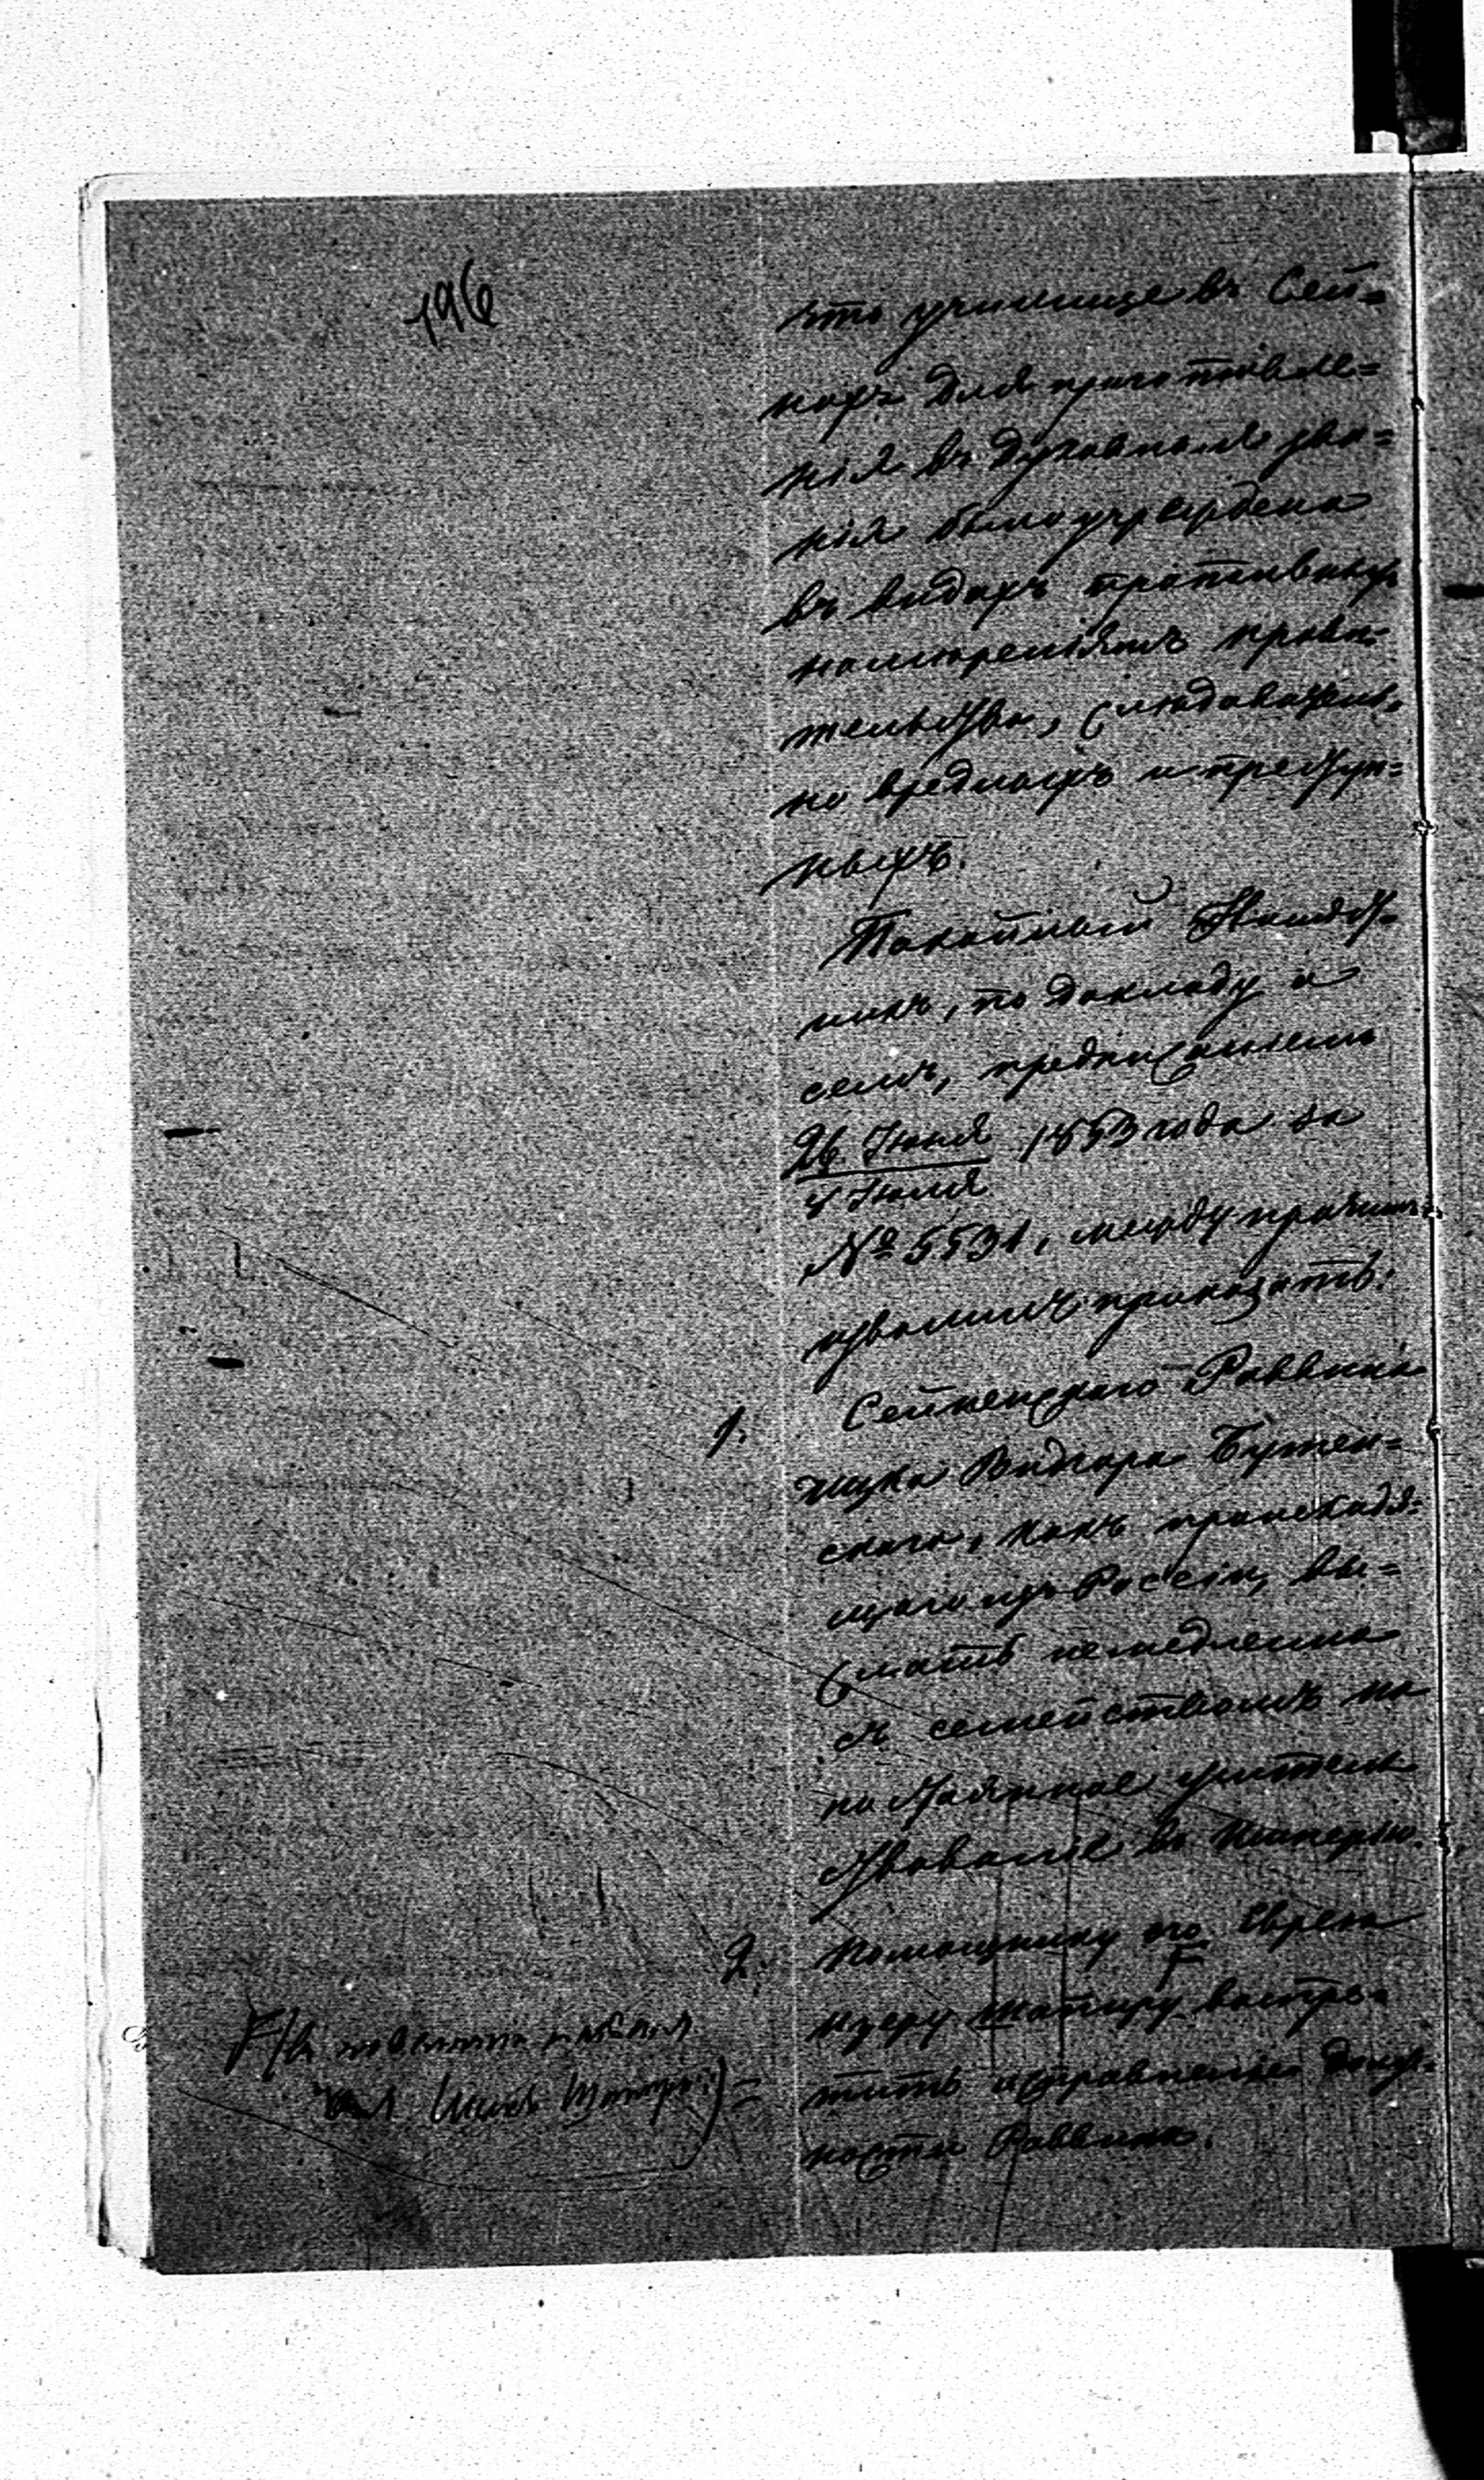 196
что училище въ Сей=
нахъ для приготовле=
нія въ духовныя зва=
нія было учреждено
въ видахъ противныхъ
намѣреніямъ прави-
тельства, слѣдователь-
но вредныхъ и преступ=
ныхъ.
Покойный Намѣст-
никъ, по докладу о
семъ, предписаніемъ
26 Іюня 1853 года за
4 Іюля
№ 5531, между прочимъ
изволилъ приказать:
1. Сейненскаго Раввина
Вигдора
скаго, какъ происходя-
щаго изъ Россіи, вы=
слать немедленно
съ семействомъ на
постоянное жительст-
ствованіе въ Имперію.
2. Помощнику его Еврею
Шапиру воспре-
тить исправленіе долж-
ности Раввина.